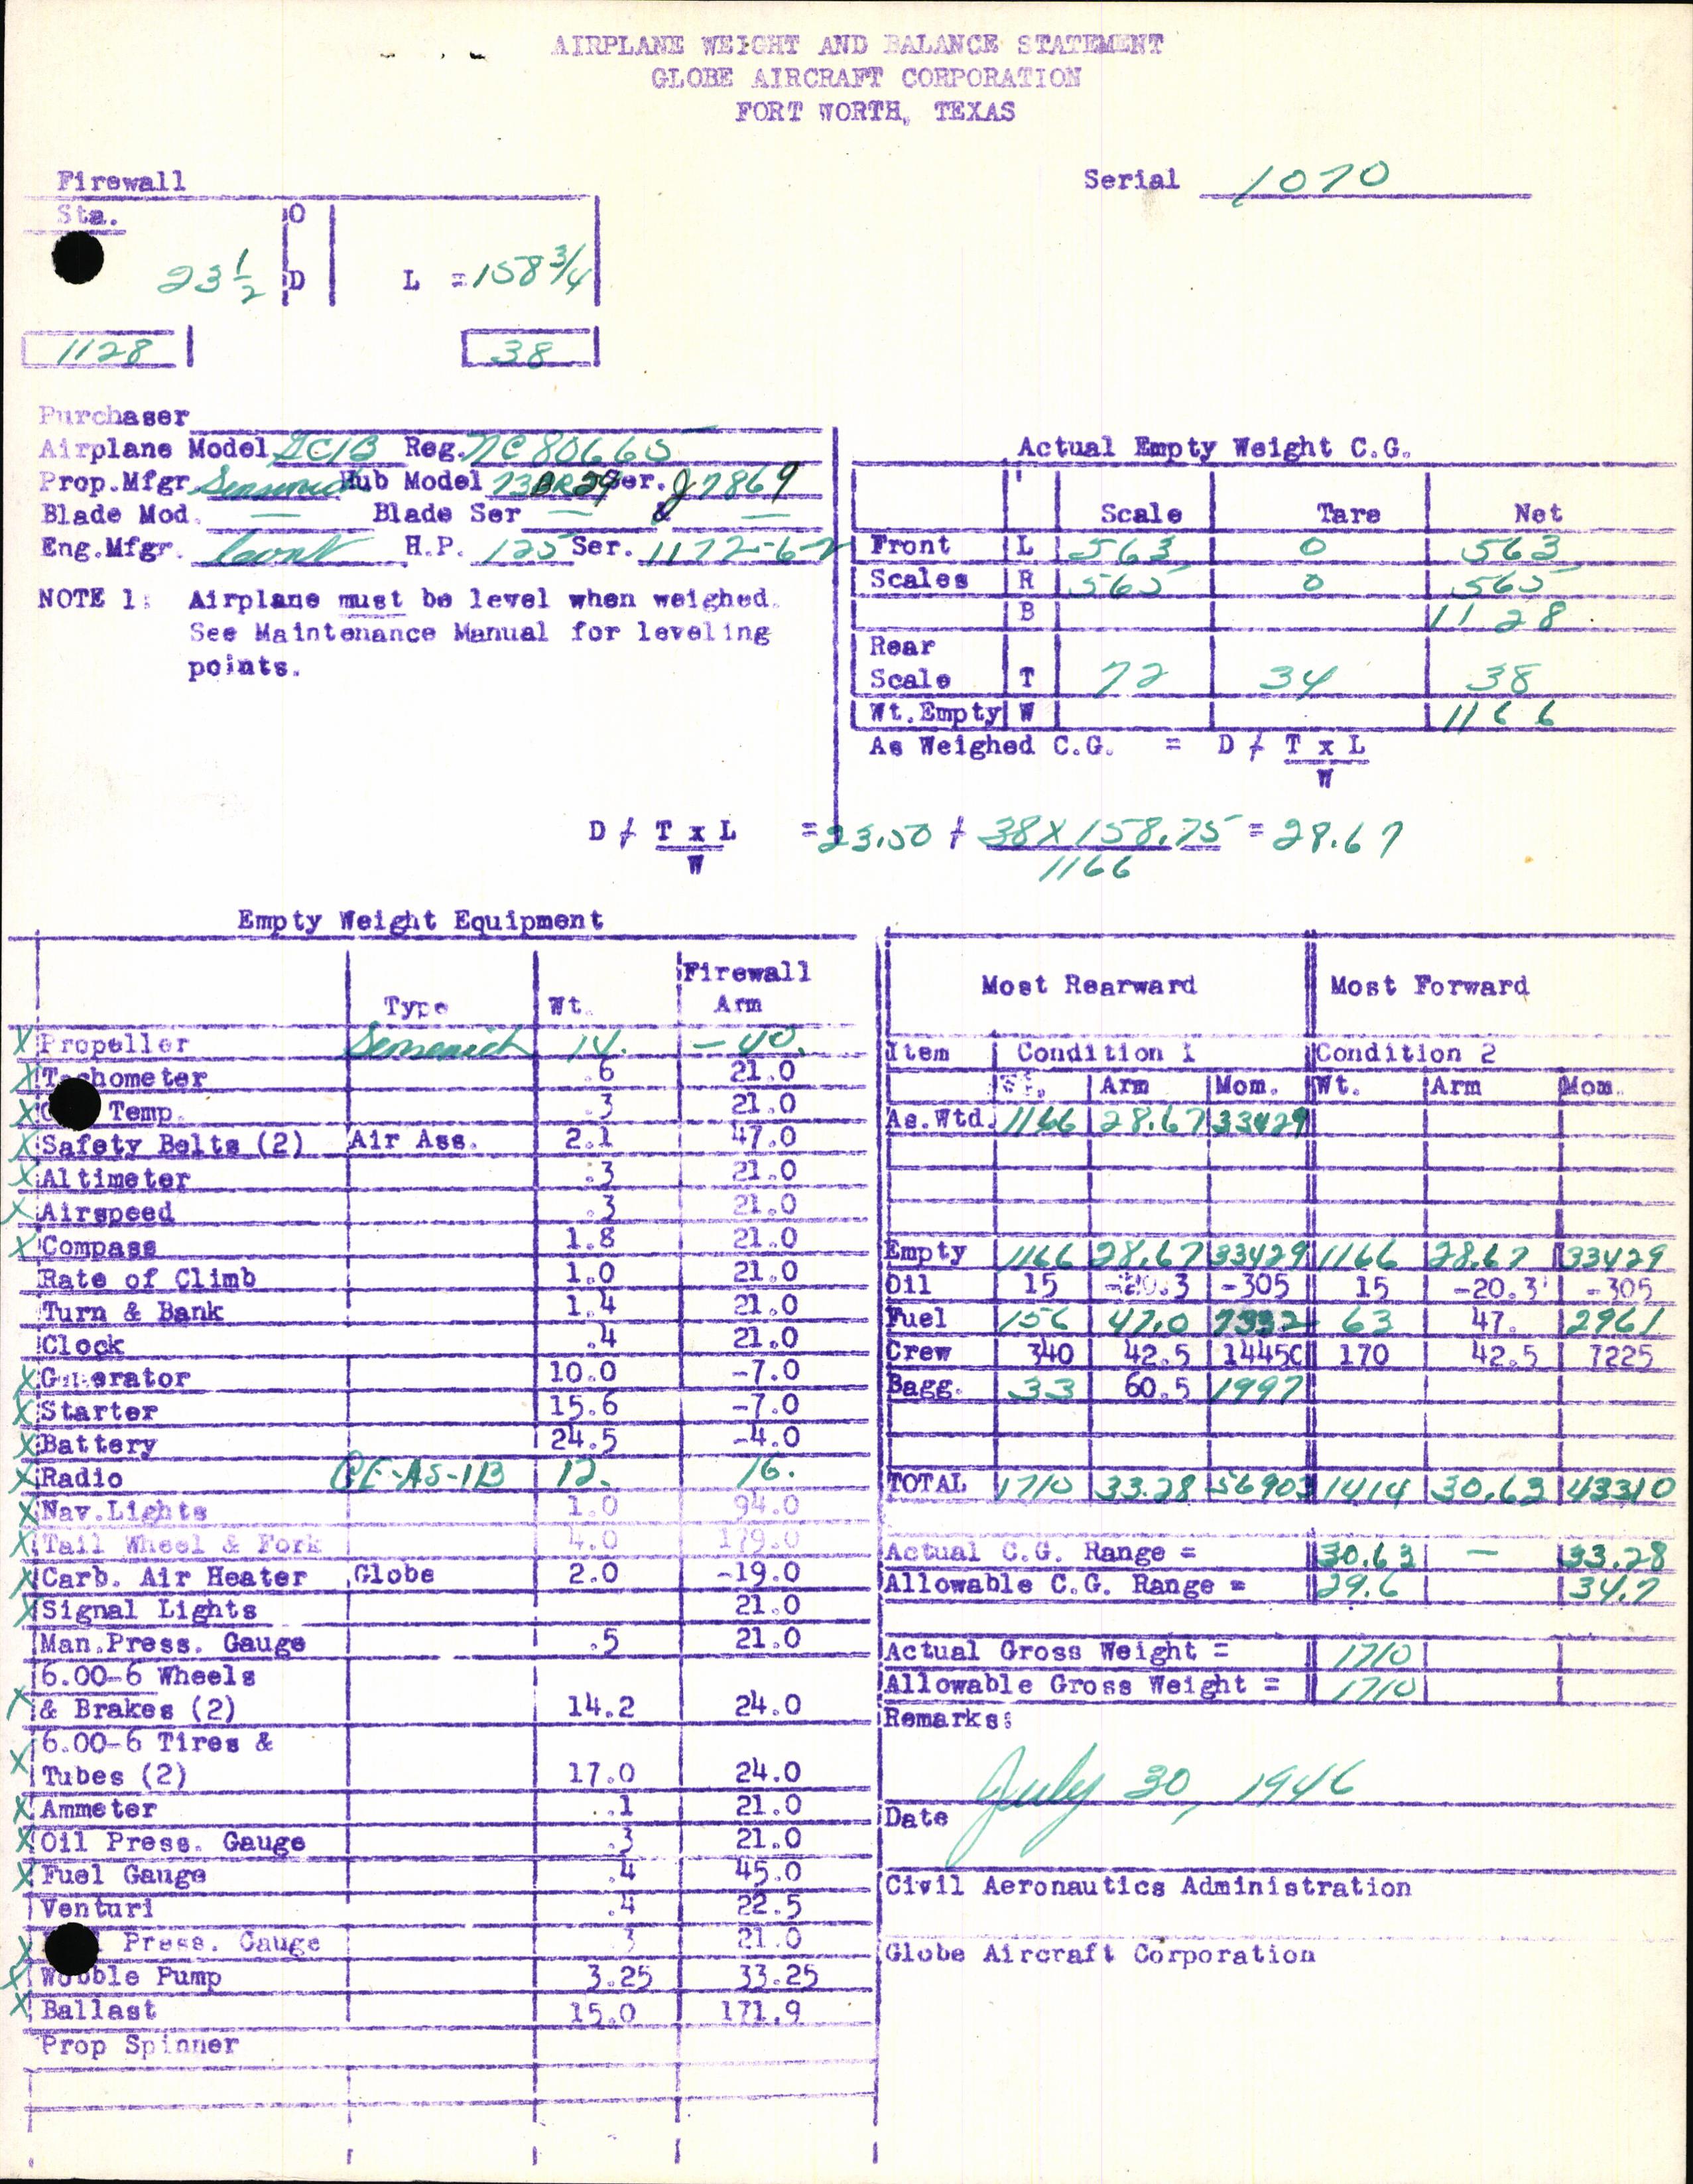 AIRPLANE WEIGHT AND BALANCE STATEMENT
GLOBE AIRCRAFT CORPORATION
FORT WORTH, TEXAS
Serial 1070
Firewall
Sta. O
23 1/2 D L = 158 3/4
1128 38
Purchaser
Airplane Model GC1B Reg. NC 80665
Prop.Mfgr. Sensenich Hub Model 73BR29 Ser. J7869
Blade Mod. — Blade Ser — & —
Eng.Mfgr. Cont H.P. 125 Ser.
NOTE 1: Airplane must be level when weighed.
See Maintenance Manual for leveling
points.
Actual Empty Weight C.G.
Scale Tare Net
Front L 563 0 563
Scales R 565 0 565
B 1128
Rear
Scale T 72 34 38
Wt.Empty W 1166
As Weighed C.G. = D + T x L
W
D + T x L = 23.50 + 38 X 158.75 = 28.67
W 1166
Empty Weight Equipment
Type Wt. Firewall Arm
X Propeller Sensenich 14. -40.
X Tachometer .6 21.0
X Temp. .3 21.0
X Safety Belts (2) Air Ass. 2.1 47.0
X Altimeter .3 21.0
X Airspeed .3 21.0
X Compass 1.8 21.0
Rate of Climb 1.0 21.0
Turn & Bank 1.4 21.0
Clock .4 21.0
X Generator 10.0 -7.0
X Starter 15.6 -7.0
X Battery 24.5 -4.0
X Radio GE-AS-1B 12. 16.
X Nav.Lights 1.0 94.0
X Tail Wheel & Fork 4.0 179.0
X Carb. Air Heater Globe 2.0 -19.0
X Signal Lights 21.0
Man.Press. Gauge .5 21.0
6.00-6 Wheels
X & Brakes (2) 14.2 24.0
6.00-6 Tires &
X Tubes (2) 17.0 24.0
X Ammeter .1 21.0
X Oil Press. Gauge .3 21.0
X Fuel Gauge .4 45.0
Venturi .4 22.5
X Press. Gauge .3 21.0
X Wobble Pump 3.25 33.25
X Ballast 15.0 171.9
Prop Spinner
Most Rearward Most Forward
Item Condition 1 Condition 2
Wt. Arm Mom. Wt. Arm Mom.
As.Wtd. 1166 28.67 33429
Empty 1166 28.67 33429 1166 28.67 33429
Oil 15 -20.3 -305 15 -20.3 -305
Fuel 156 47.0 7332 63 47. 2961
Crew 340 42.5 14450 170 42.5 7225
Bagg. 33 60.5 1997
TOTAL 1710 33.28 56903 1414 30.63 43310
Actual C.G. Range = 30.63 — 33.28
Allowable C.G. Range = 29.6 34.7
Actual Gross Weight = 1710
Allowable Gross Weight = 1710
Remarks:
July 30, 1946
Date
Civil Aeronautics Administration
Globe Aircraft Corporation